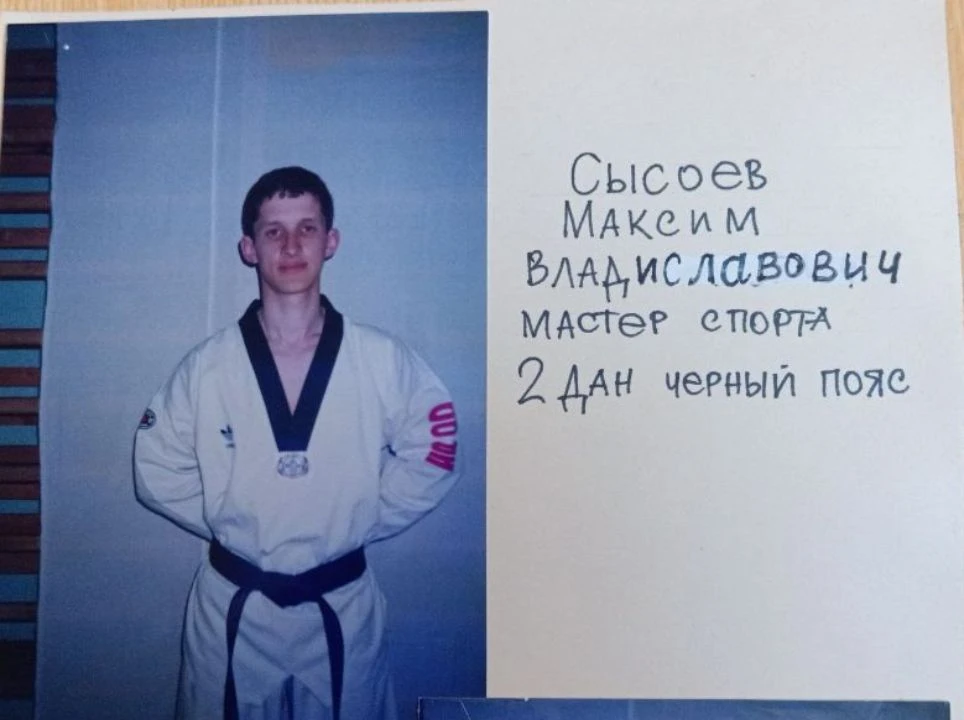 Сысоев
Максим
Владиславович
мастер спорта
2 дан черный пояс